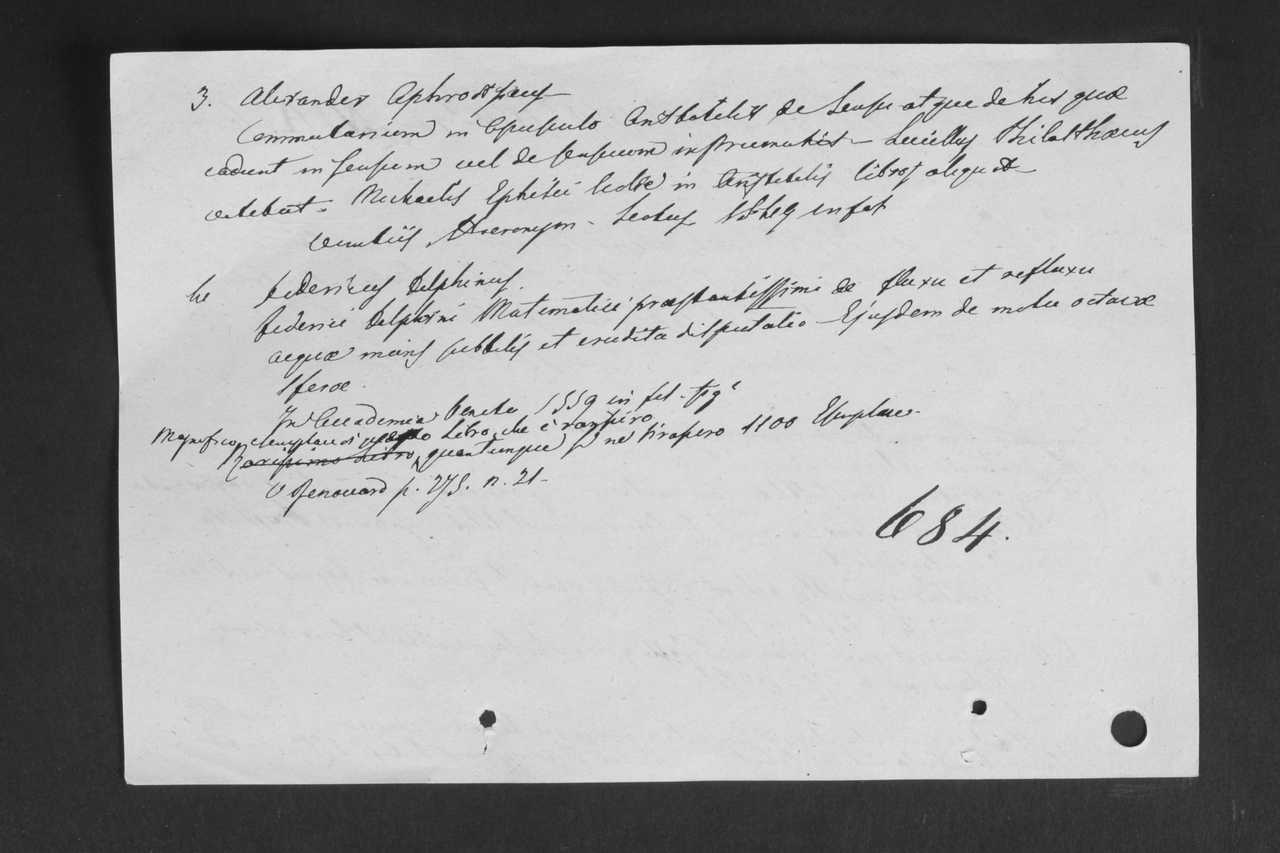 3. Alexander Aphrodiseus
Commentarium in Opusculo Aristotelis de Sensu atque de his quæ
cadunt in sensum vel de sensuum instrumentis - Lucillus Philaltheus
vertebat. Michaelis Ephesii Scoliæ in Aristotelis libros aliquot
Venetiis Hieronymum Scotus in fol
Federicus Delphinus.
Federici Delphini Matematici præstantissimi de fluxu et refluxu
aequæ maris subtilis et erudita disputatio - Ejusdem de motu octavæ
Sferæ.
In Accademia Veneta 1559 in fol. fig.
Magnifico esemplare di questo Libro che è rarissimo
Rarissimo Libro, quantunque se ne tirassero 1100 Esemplari.
V Renouard p. 275. n. 21-
684.